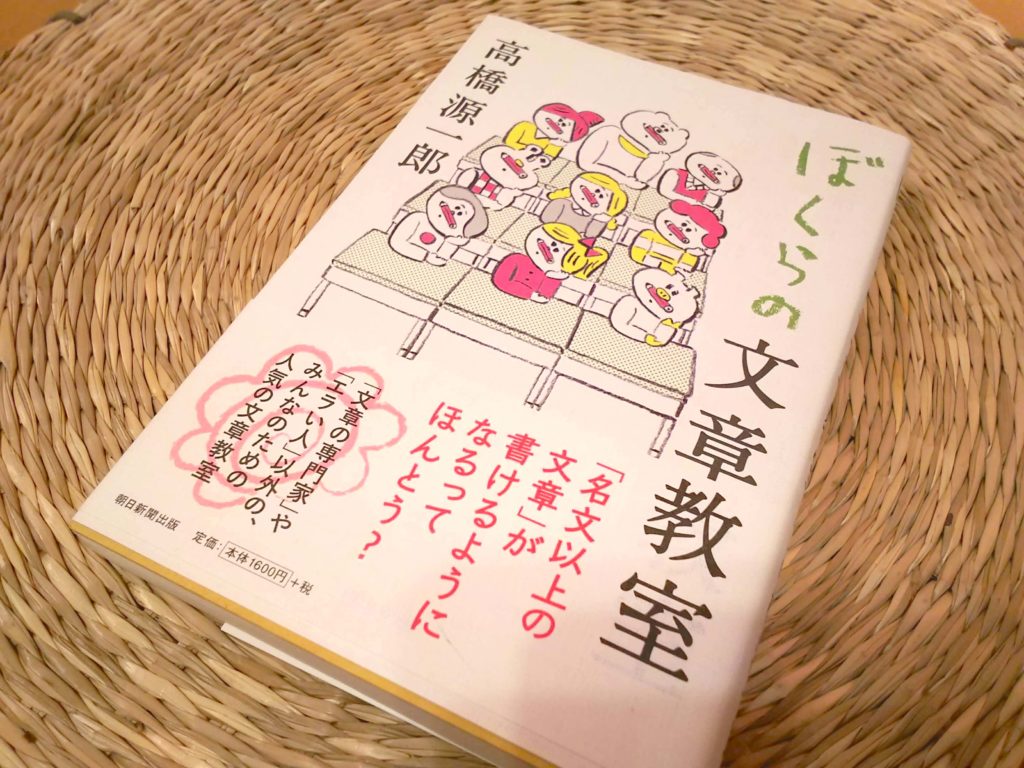 ぼくらの文章教室
高橋源一郎
「名文以上の
文章」が
書けるように
なるって
ほんとう?
「文章の専門家」や
「エラい人」以外の、
みんなのための
人気の文章教室
朝日新聞出版
定価:本体1600円+税